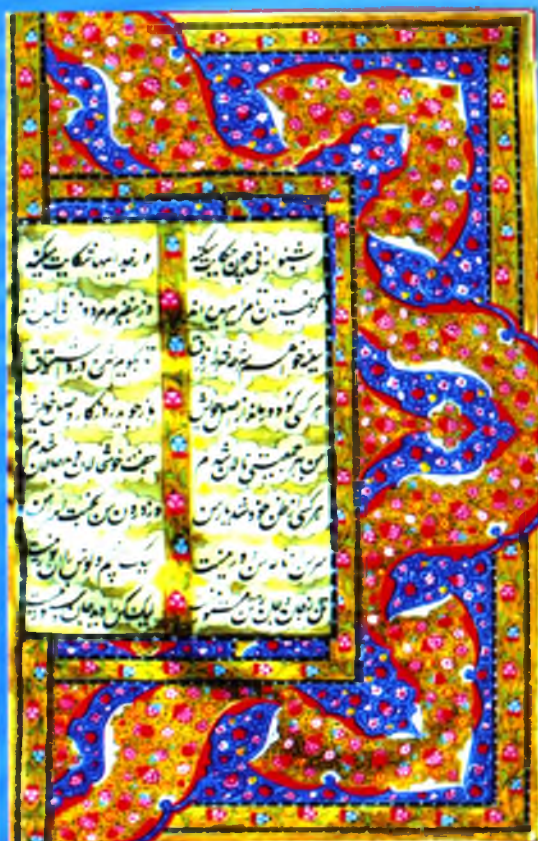 بشنو از نی چون حکایت میکند وز جداییها شکایت میکند
کز نیستان تا مرا ببریده اند در نفیرم مرد و زن نالیده
سینه خواهم شرحه شرحه از فراق تا بگویم درد اشتیاق
هر کسی کو دور ماند از اصل خویش باز جوید روزگار وصل خویش
من بهر جمعیتی نالان شدم جفت خوشحالان و بدحالان شدم
هر کسی از ظن خود شد یار من وز درون من نجست اسرار من
سر من از ناله من دور نیست لیک چشم و گوش را آن نور نیست
تن ز جان و جان ز تن مستور لیک کس را دید جان دستور نیست